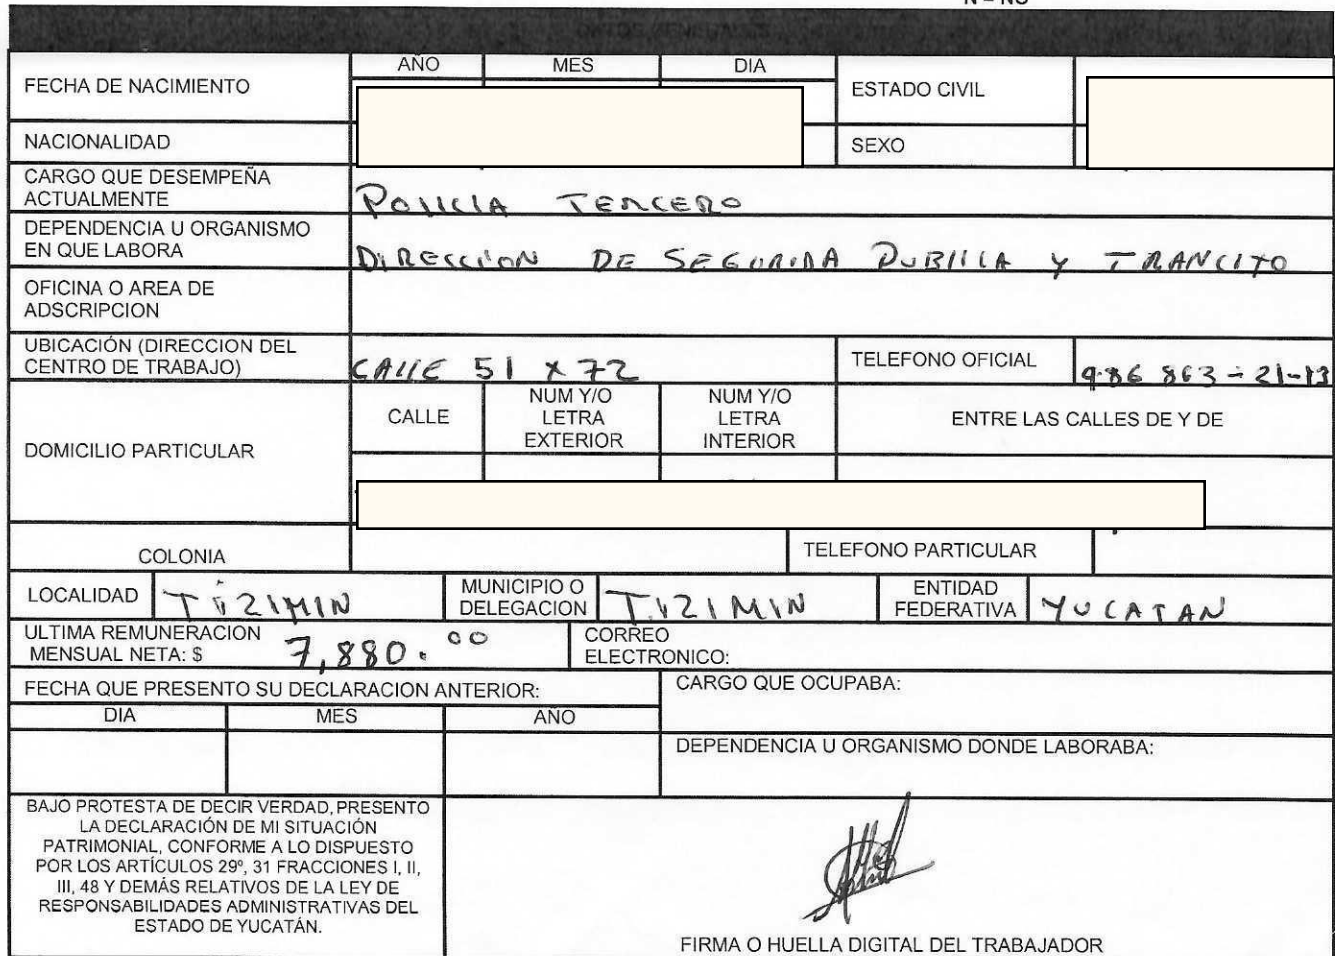 N = NO
DATOS GENERALES
AÑO MES DIA
FECHA DE NACIMIENTO ESTADO CIVIL
NACIONALIDAD SEXO
CARGO QUE DESEMPEÑA
ACTUALMENTE
POLICIA TERCERO
DEPENDENCIA U ORGANISMO
EN QUE LABORA
DIRECCION DE SEGURIDA PUBLICA Y TRANCITO
OFICINA O AREA DE
ADSCRIPCION
UBICACIÓN (DIRECCION DEL
CENTRO DE TRABAJO)
CALLE 51 x 72
TELEFONO OFICIAL
986 863-21-13
DOMICILIO PARTICULAR
CALLE
NUM Y/O
LETRA
EXTERIOR
NUM Y/O
LETRA
INTERIOR
ENTRE LAS CALLES DE Y DE
COLONIA TELEFONO PARTICULAR
LOCALIDAD TIZIMIN
MUNICIPIO O
DELEGACION
TIZIMIN
ENTIDAD
FEDERATIVA
YUCATAN
ULTIMA REMUNERACION
MENSUAL NETA: $ 7,880.00
CORREO
ELECTRONICO:
FECHA QUE PRESENTO SU DECLARACION ANTERIOR:
DIA MES AÑO
CARGO QUE OCUPABA:
DEPENDENCIA U ORGANISMO DONDE LABORABA:
BAJO PROTESTA DE DECIR VERDAD, PRESENTO
LA DECLARACIÓN DE MI SITUACIÓN
PATRIMONIAL, CONFORME A LO DISPUESTO
POR LOS ARTÍCULOS 29º, 31 FRACCIONES I, II,
III, 48 Y DEMÁS RELATIVOS DE LA LEY DE
RESPONSABILIDADES ADMINISTRATIVAS DEL
ESTADO DE YUCATÁN.
FIRMA O HUELLA DIGITAL DEL TRABAJADOR